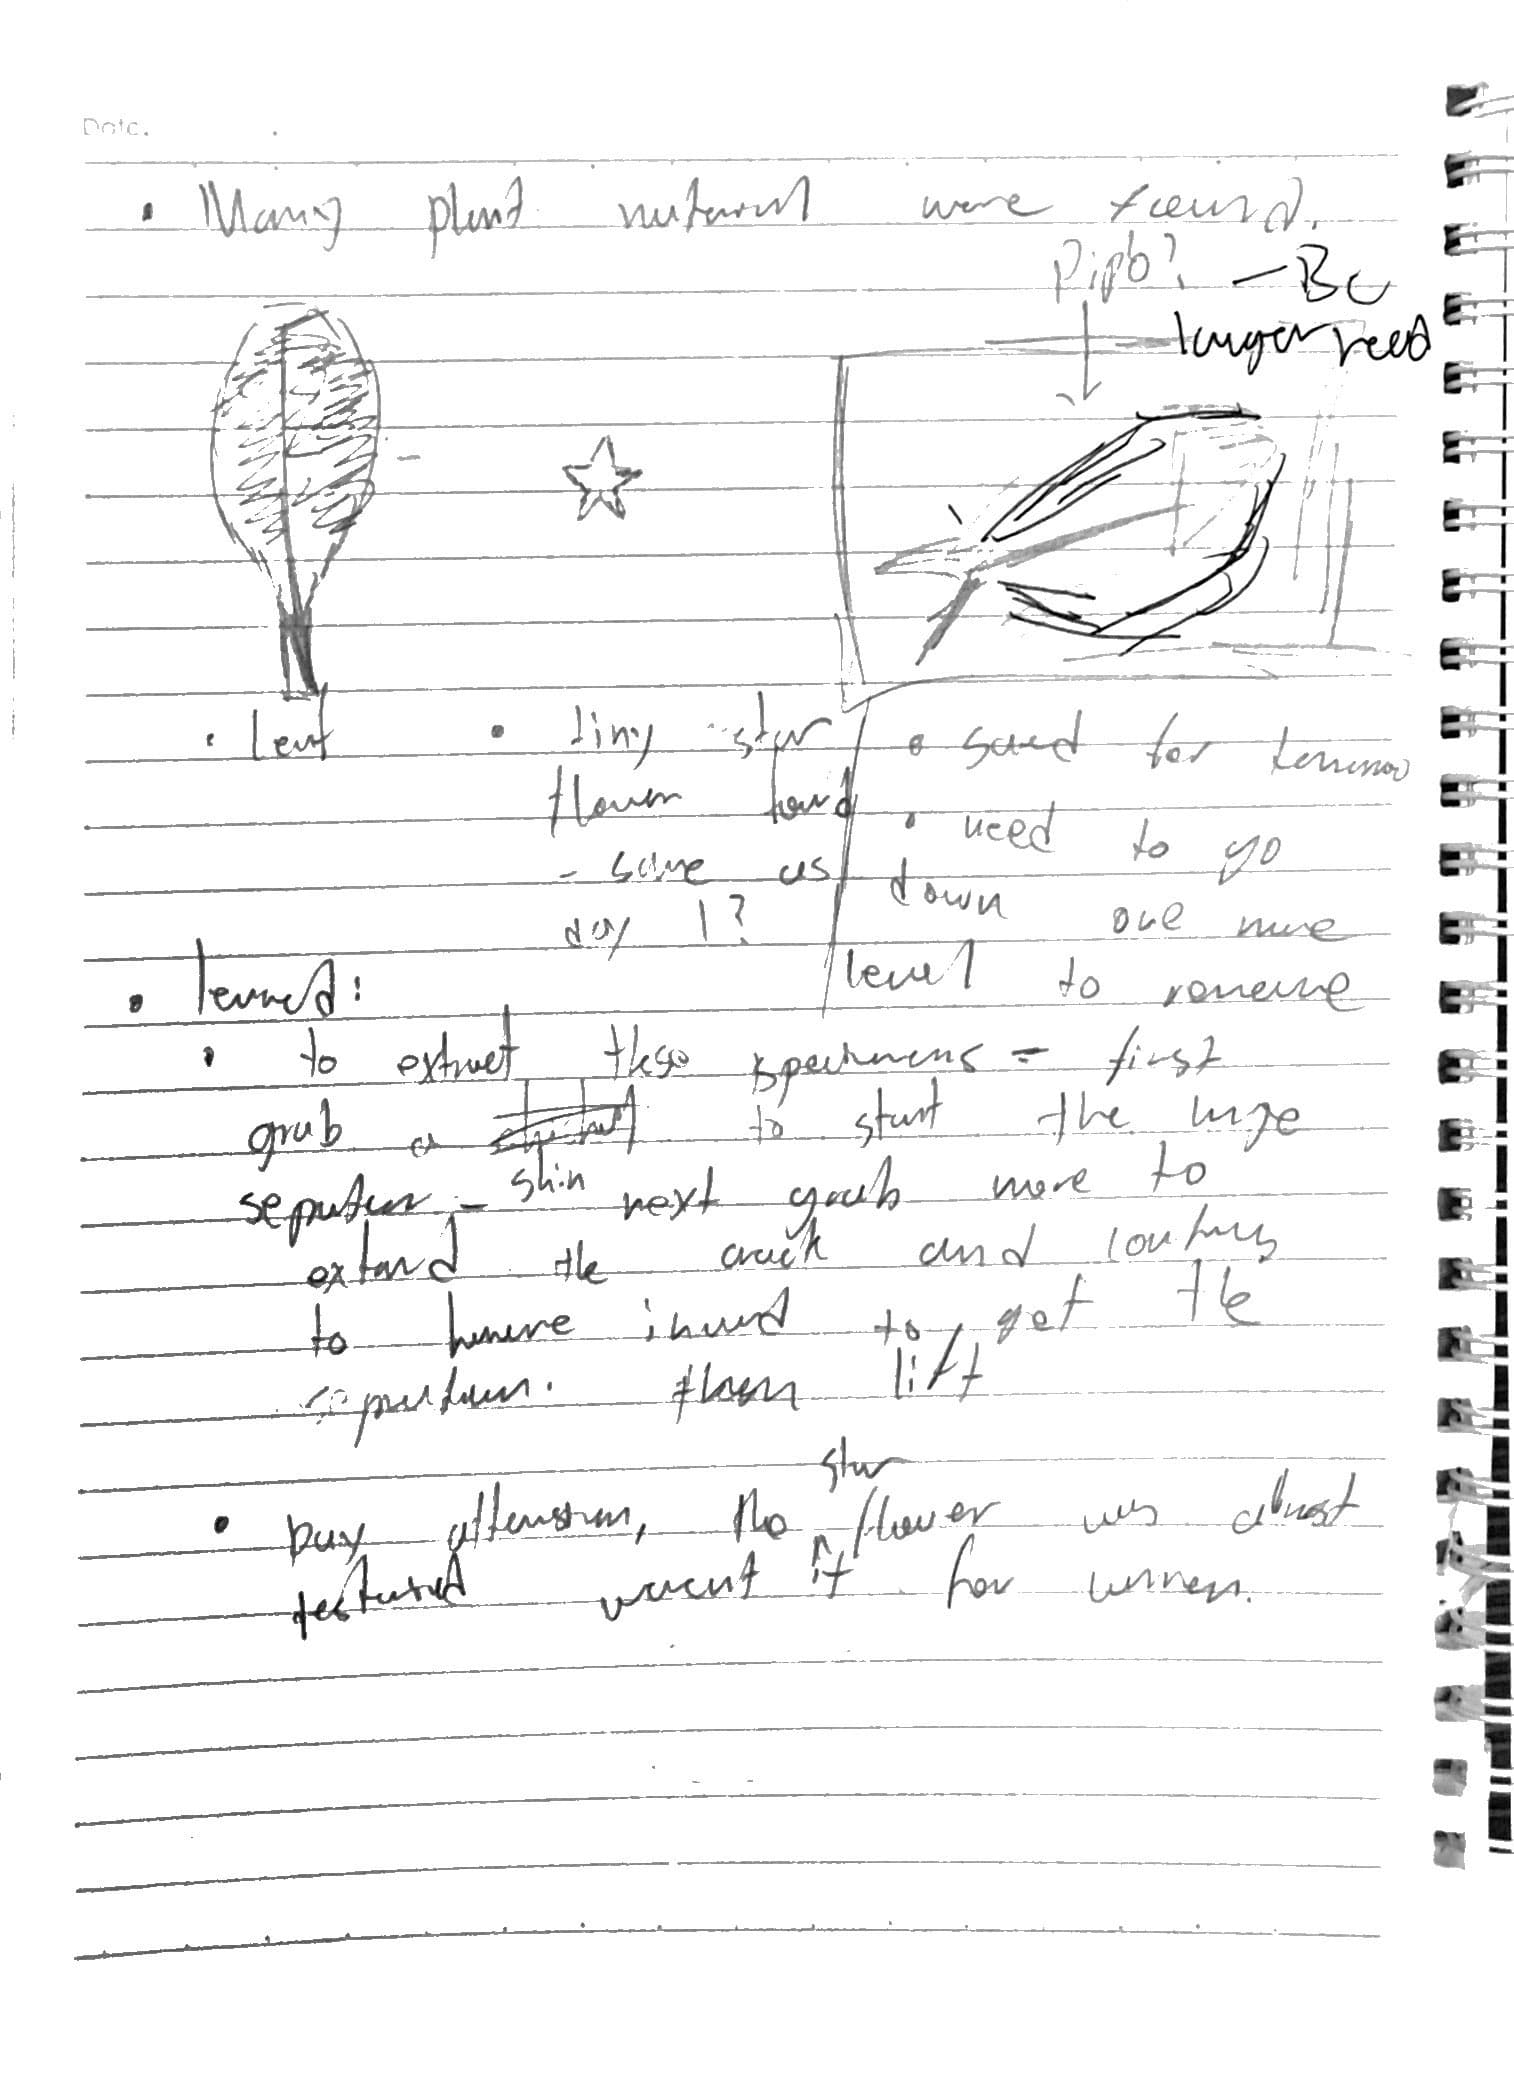 Date.
• Many plant material were found.
Pipb? - BC
longer reed
• leaf
• tiny star
flower found
- same as
day 1?
• saved for tomorrow
• need to go
down one more
level to remove
• learned:
• to extract these specimens = first
grab a to start the large
seperation - shin next grab more to
extend the crack and continue
to hammer inward to get the
seperation. then lift
• pay attension, the star flower was almost
it for